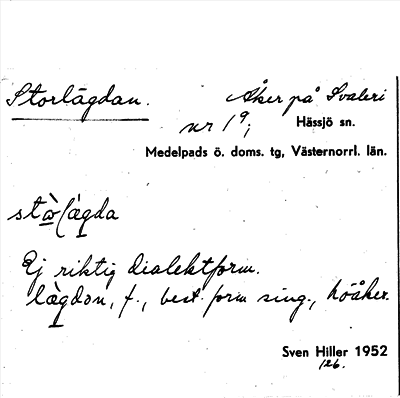 Storlägdan. Åker på Svaleri
nr 1⁹; Hässjö sn.
Medelpads ö. doms. tg, Västernorrl. län.
stòlägda
Ej riktig dialektform.
lägdan, f., best. form sing., höåker.
Sven Hiller 1952
126.